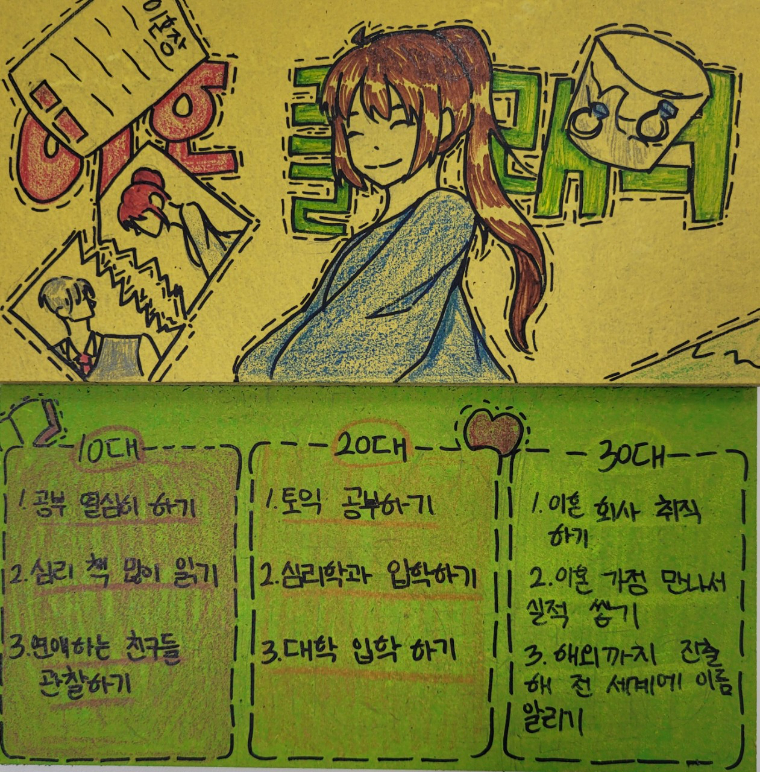 이혼장
이혼 플래너
10대
1. 공부 열심히 하기
2. 심리 책 많이 읽기
3. 연애하는 친구들
관찰하기
20대
1. 토익 공부하기
2. 심리학과 입학하기
3. 대학 입학 하기
30대
1. 이혼 회사 취직
하기
2. 이혼 가정 만나서
실적 쌓기
3. 해외까지 진출
해 전 세계에 이름
알리기